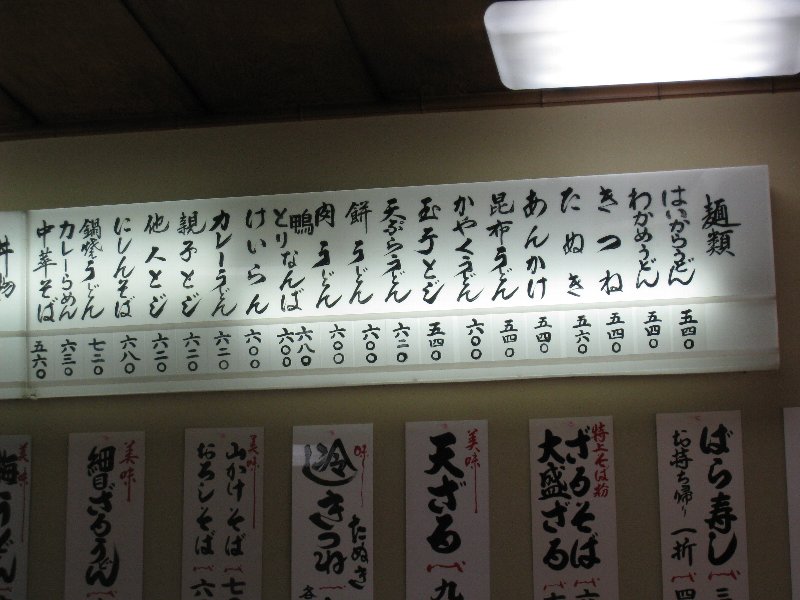 麺類
はいからうどん 五四〇
わかめうどん 五四〇
きつね 五四〇
たぬき 五六〇
あんかけ 五四〇
昆布うどん 五四〇
かやくうどん 六〇〇
玉子とじ 五四〇
天ぷらうどん 六二〇
餅うどん 六〇〇
肉うどん 六〇〇
鴨 六八〇
とりなんば 六〇〇
けいらん 六〇〇
カレーうどん 六二〇
親子とじ 六二〇
他人とじ 六二〇
にしんそば 六八〇
鍋焼うどん 七二〇
カレーらめん 六三〇
中華そば 五六〇
丼物
ばら寿し 三
お持ち帰り 一折 四
特上そば粉
ざるそば 六
大盛ざる
美味し
天ざる 九
味
冷 きつね
たぬき
各
美味し
山かけそば 七
おろしそば 六
美味
細目ざるうどん
美味
梅うどん